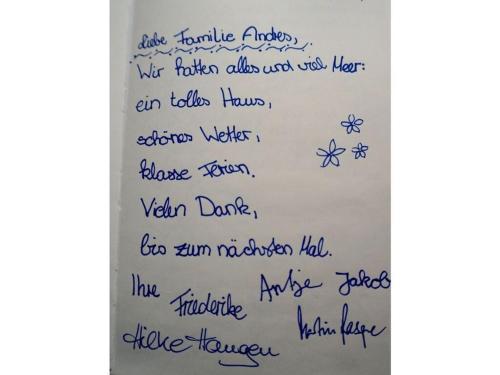 Liebe Familie Andres,
Wir hatten alles und viel Meer:
ein tolles Haus,
schönes Wetter,
klasse Ferien.
Vielen Dank,
bis zum nächsten Mal.
Ihre Friederike Antje Jakob
Hilke Haugen Martin